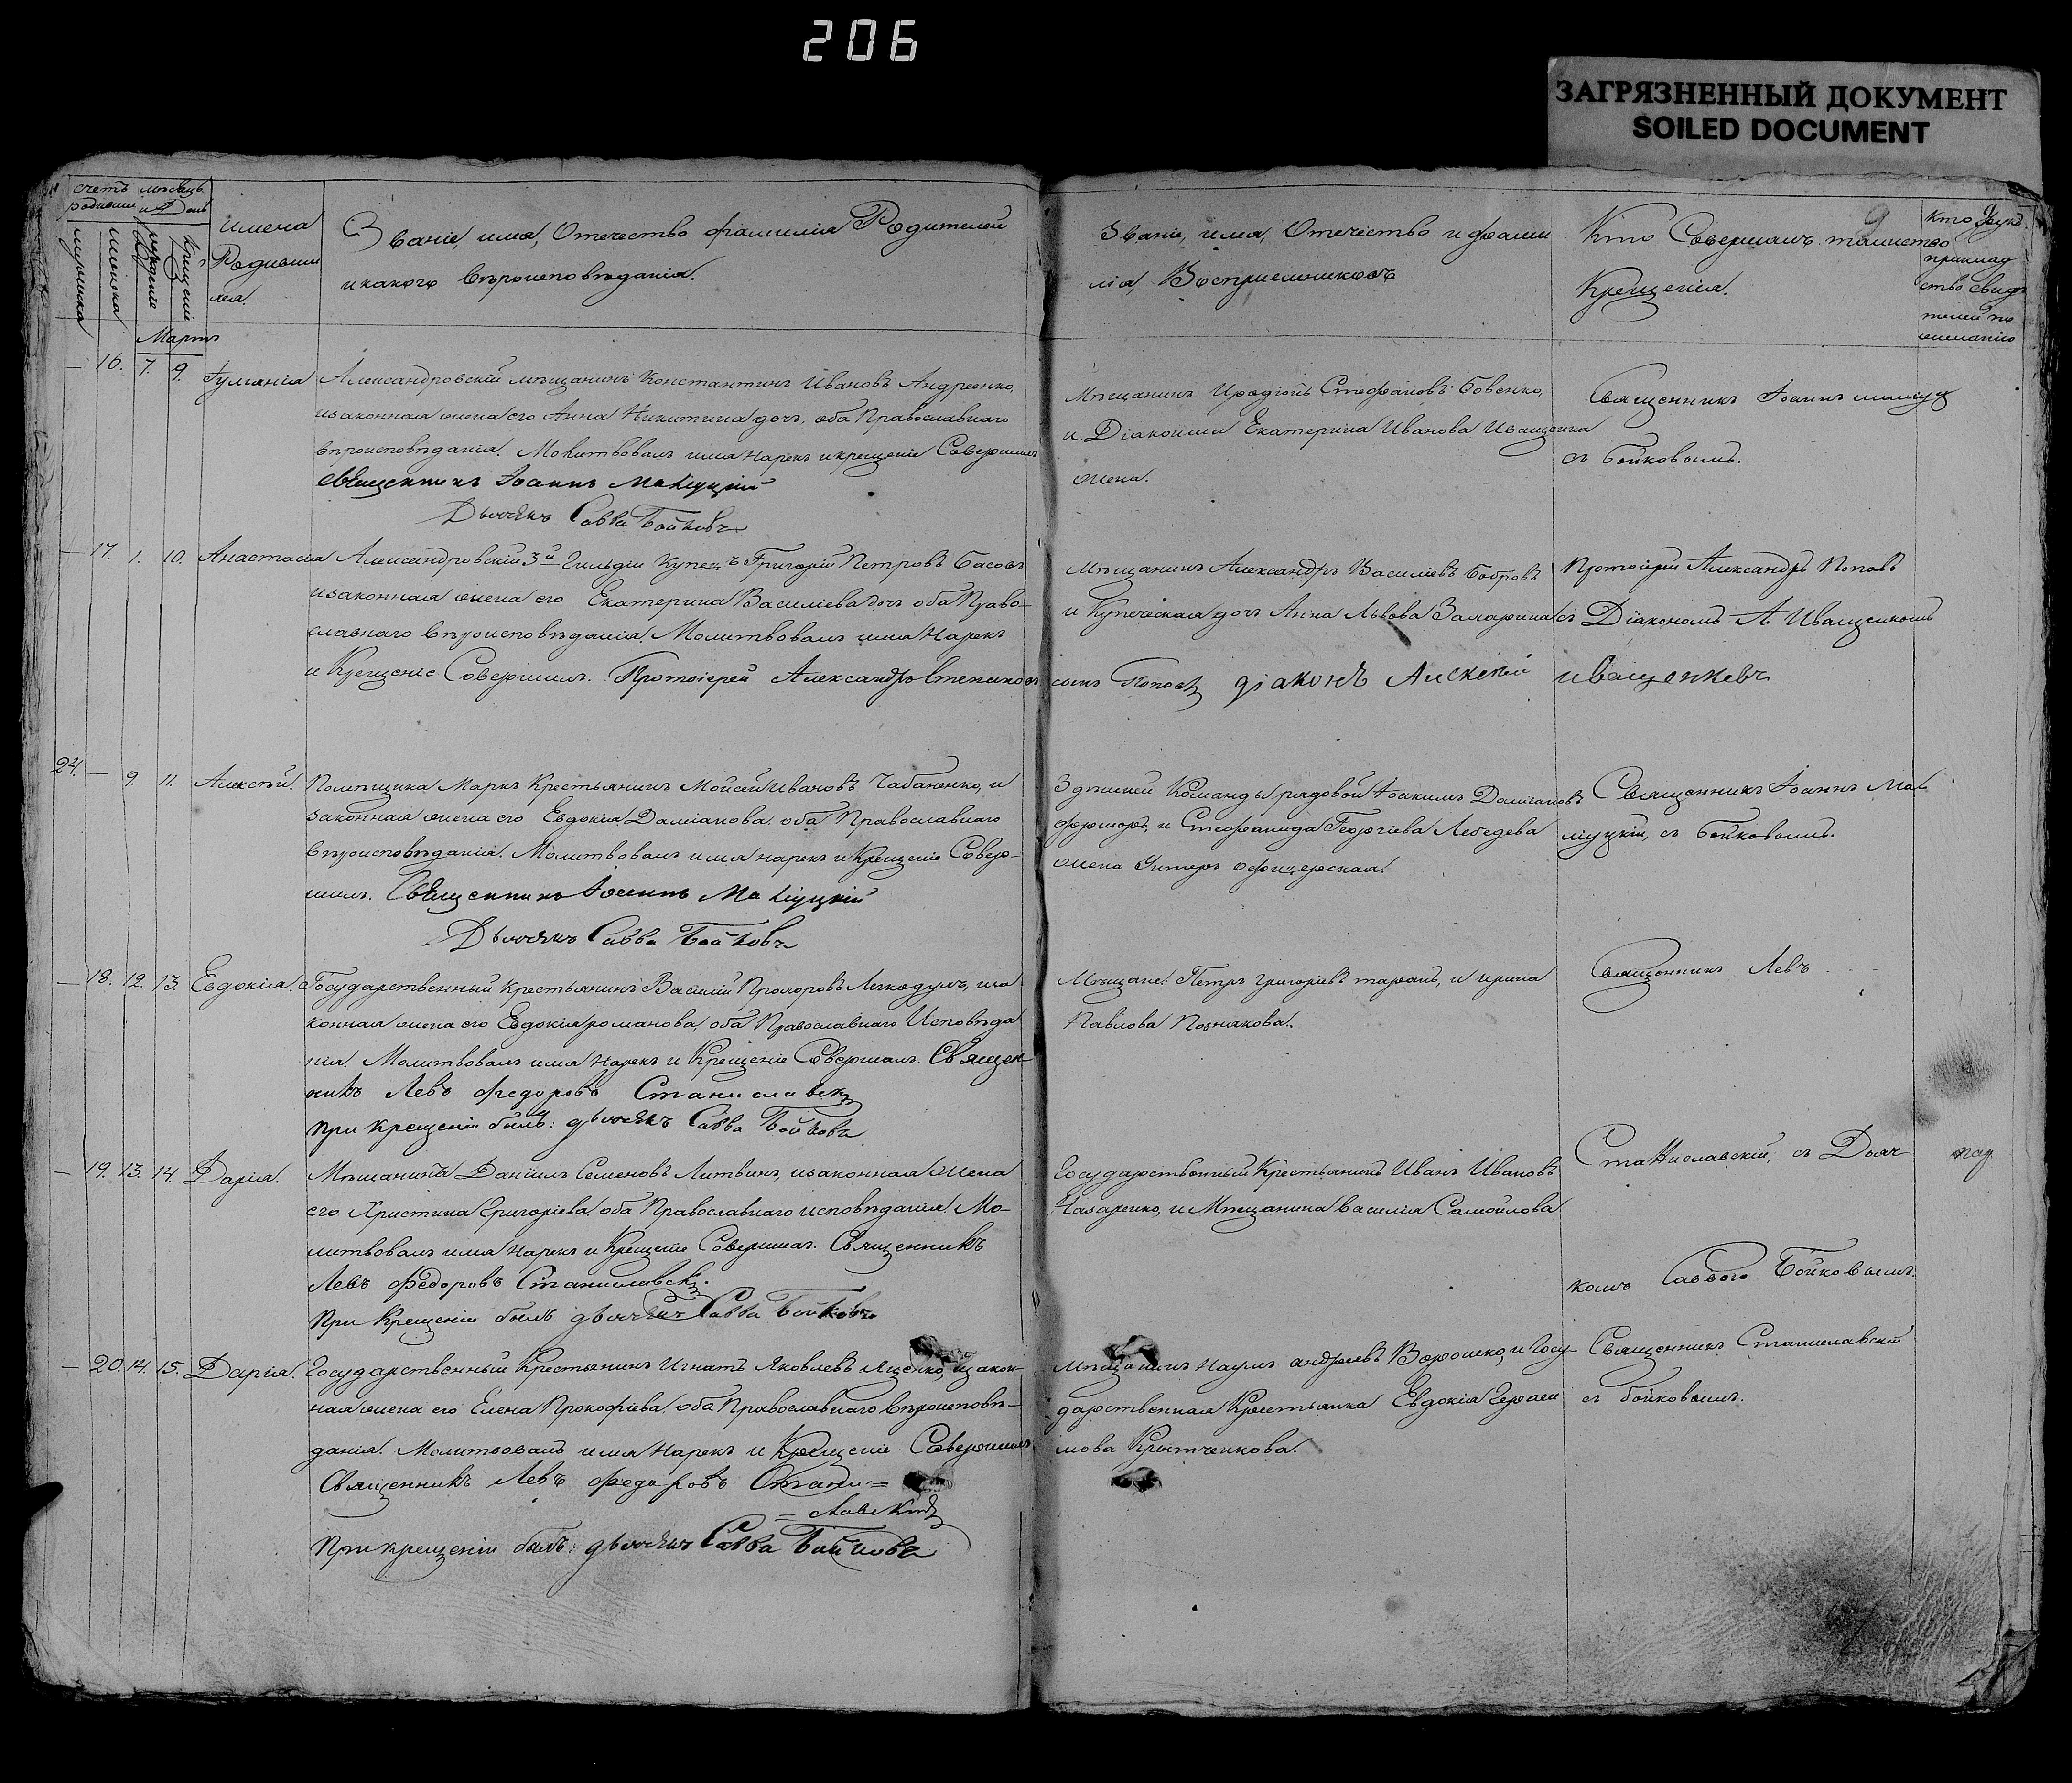 206
ЗАГРЯЗНЕННЫЙ ДОКУМЕНТ
SOILED DOCUMENT
9
счетъ
мѣсяцъ
и День
мужеска
женска
рожденіе
Крещеніе
Мартъ
имена
Родивши
мся.
Званіе, имя, Отечество фамилія Родителей
и какого вѣроисповѣданія.
Званіе, имя, Отечество и фами
лія, Воспріемниковъ
Кто Совершалъ таинство
Крещенія.
Кто
приклад
ство свид
телей по
желанію
— 16. 7. 9. Іуліанія Александровскій мѣщанинъ Константинъ Ивановъ Андреенко,
и законная жена его Анна Никитина дочь, оба Православнаго
вѣроисповѣданія. Молитвовалъ имя нарекъ и крещеніе Совершилъ
священникъ Іоаннъ Малуцкій
Дьячекъ Савва Бойковъ
Мѣщанинъ Иродіонъ Стефановъ Бовенко,
и Діаконша Екатерина Иванова Иващенка
жена.
Священникъ Іоаннъ
съ Бойковымъ.
— 17. 1. 10. Анастасія Александровскій 3й Гильдіи Купецъ Григорій Петровъ Басовъ
и законная жена его Екатерина Василіева дочь оба Право-
славнаго вѣроисповѣданія. Молитвовалъ имя нарекъ
и Крещеніе Совершилъ. Протоіерей Александръ Степановъ сынъ Поповъ діаконъ Алексей иващенковъ
Мѣщанинъ Александръ Василіевъ Бобровъ
и Купеческая дочь Анна Львова Захарина
Протоіерей Александръ Поповъ
съ Діакономъ А Иващенкомъ
24. — 9. 11. Алексѣй. Помѣщика Марка Крестьянинъ Мойсей Ивановъ Чабаненко, и
законная жена его Евдокія Даміанова оба Православнаго
вѣроисповѣданія. Молитвовалъ имя нарекъ и Крещеніе Совер-
шилъ. Священникъ Іоаннъ Малуцкій
Дьячекъ Савва Бойковъ
Здѣшней Команды рядовой Іоакимъ Даміановъ
и Стефанида Георгіева Лебедева
жена Унтеръ офицерская.
Священникъ Іоаннъ Ма-
луцкій, съ Бойковымъ.
— 18. 12. 13. Евдокія. Государственный крестьянинъ Василій Прохоровъ Легкодухъ, и за
конная жена его Евдокія романова, оба Православнаго Исповѣда
нія. Молитвовалъ имя нарекъ и Крещеніе Совершалъ. Священ-
никъ Левъ Федоровъ Станиславскій
При крещеніи былъ: дьячекъ Савва Бойковъ
Мѣщане: Петръ Григоріевъ таранъ, и ирина
Павлова Познякова.
Священникъ Левъ
— 19. 13. 14. Дарія. Мѣщанинъ Даніилъ Семеновъ Литвинъ, и законная жена
его Христина Григоріева оба Православнаго исповѣданія. Мо-
литвовалъ имя нарекъ и Крещеніе Совершалъ. Священникъ
Левъ Федоровъ Станиславскій.
При Крещеніи былъ дьячекъ Савва Бойковъ
Государственный Крестьянинъ Иванъ Ивановъ
Назаренко, и Мѣщанина Василія Самойлова
Станиславскій, съ Дьяч
комъ Саввою Бойковымъ.
— 20. 14. 15. Дарія. Государственный Крестьянинъ Игнатъ Яковлевъ Яценко, и закон-
ная жена его Елена Прокофіева оба Православнаго вѣроисповѣ-
данія. Молитвовалъ имя нарекъ и Крещеніе Совершилъ
Священникъ Левъ Федоровъ Стани=
=славскій
При крещеніи былъ: дьячекъ Савва Бойковъ
Мѣщанинъ Наумъ андреевъ и Госу-
дарственная Крестьянка Евдокія Гераси
мова
Священникъ Станиславскій
съ бойковымъ.